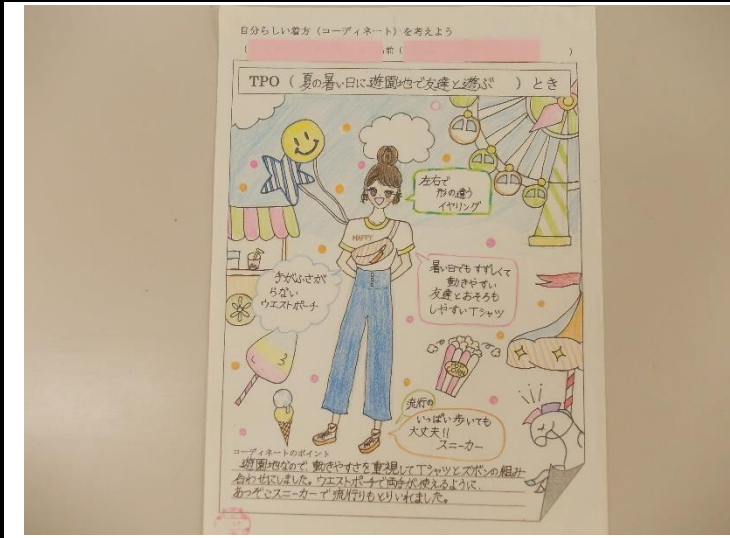 自分らしい着方(コーディネート)を考えよう
(
前(
)
TPO(夏の暑い日に遊園地で友達と遊ぶ)とき
左右で
形の違う
イヤリング
HAPPY
暑い日でもすずしくて
動きやすい
友達とおそろも
しやすいTシャツ
手がふさが
らない
ウエストポーチ
POP
CORN
流行の
いっぱい歩いても
大丈夫!!
スニーカー
コーディネートのポイント
遊園地なので、動きやすさを重視してTシャツとズボンの組み
合わせにしました。ウエストポーチで両手が使えるように、
あつぞこスニーカーで流行りもとりいれました。